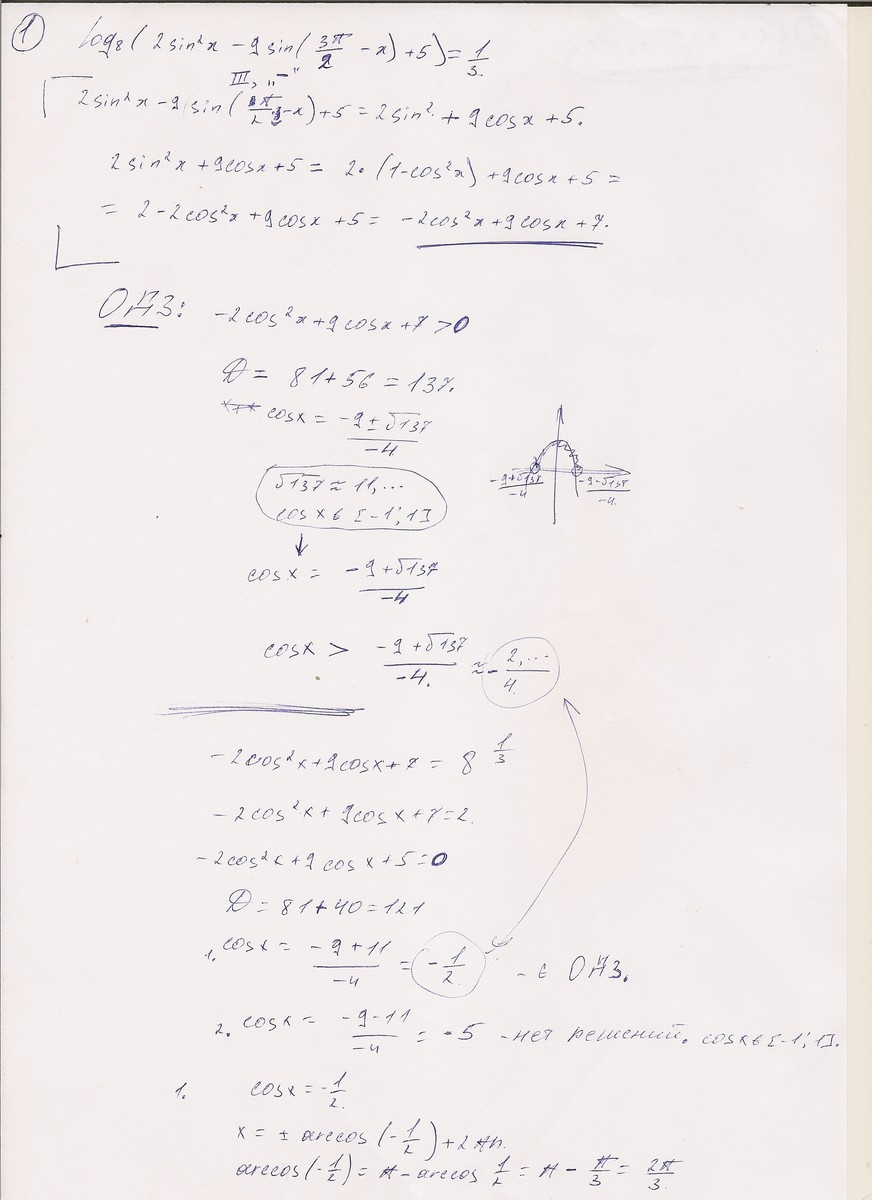 ① log₈(2sin²x - 9sin(3π/2 - x) + 5) = 1/3.
III, „-"
2sin²x - 9sin(π/2·3 - x) + 5 = 2sin² + 9cosx + 5.
2sin²x + 9cosx + 5 = 2·(1-cos²x) + 9cosx + 5 =
= 2 - 2cos²x + 9cosx + 5 = -2cos²x + 9cosx + 7.
ОДЗ: -2cos²x + 9cosx + 7 > 0
D = 81 + 56 = 137.
cosx = (-9 ± √137)/-4
√137 ≈ 11,...
cosx ∈ [-1; 1]
(-9+√137)/-4 (-9-√137)/-4.
cosx = (-9 + √137)/-4
cosx > (-9 + √137)/-4. ≈ - 2,.../4.
-2cos²x + 9cosx + 7 = 8^(1/3)
-2cos²x + 9cosx + 7 = 2.
-2cos²x + 9cosx + 5 = 0
D = 81 + 40 = 121
1. cosx = (-9 + 11)/-4 = -1/2. - ∈ ОДЗ.
2. cosx = (-9-11)/-4 = -5 - нет решений. cosx ∈ [-1; 1].
1. cosx = -1/2.
x = ± arccos(-1/2) + 2πn.
arccos(-1/2) = π - arccos 1/2 = π - π/3 = 2π/3.